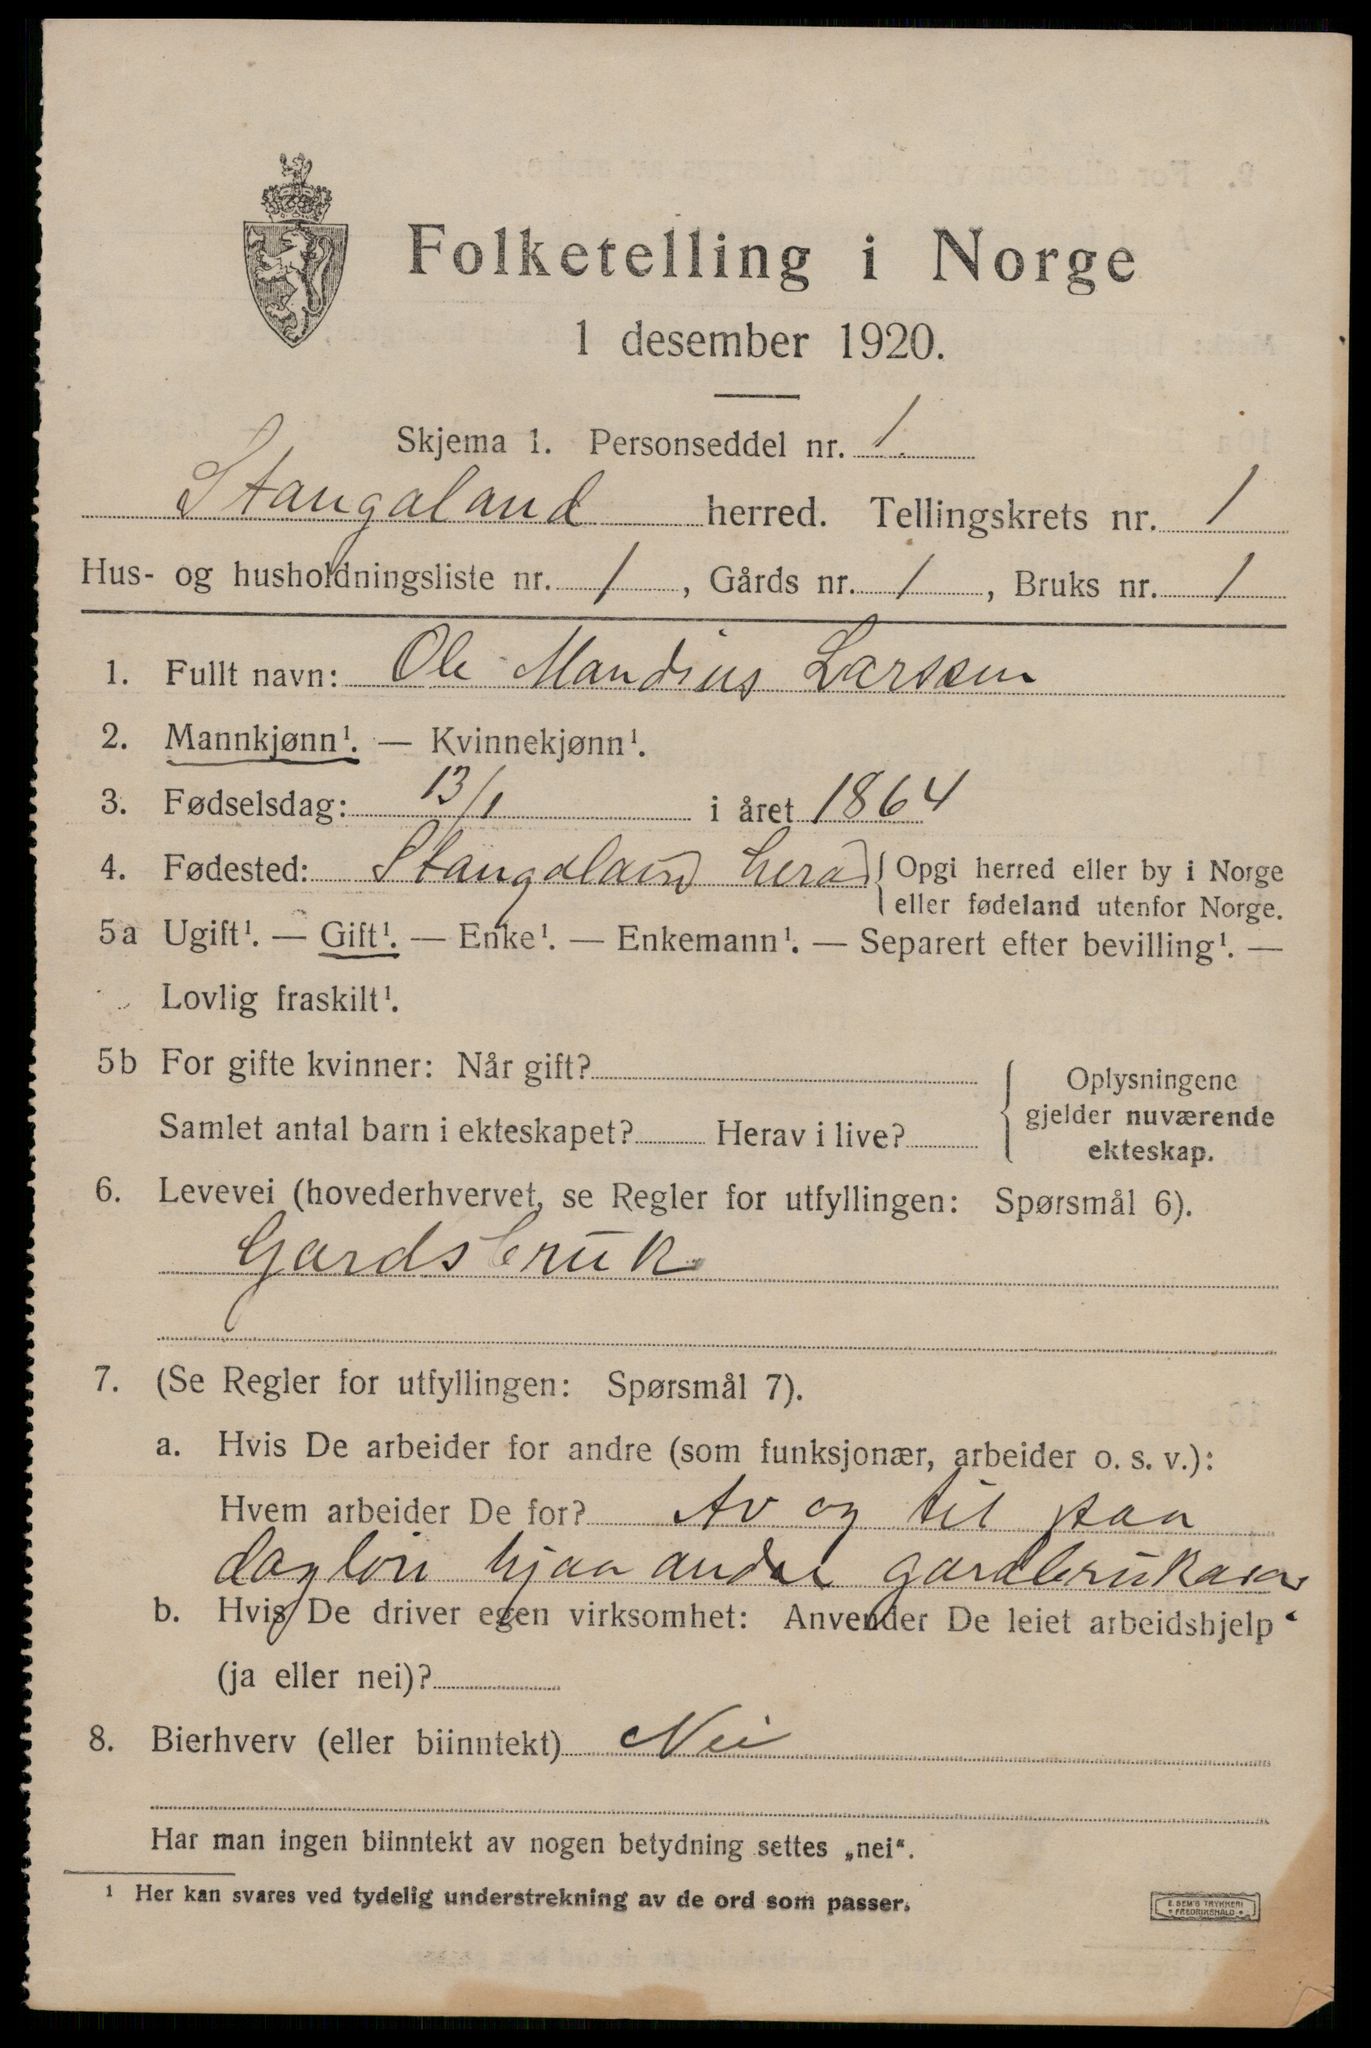 Folketelling i Norge
1 desember 1920.
Skjema 1. Personseddel nr. 1.
Stangaland herred. Tellingskrets nr. 1
Hus- og husholdningsliste nr. 1, Gårds nr. 1, Bruks nr. 1
1. Fullt navn: Ole Mandius Larssen
2. Mannkjønn¹. — Kvinnekjønn¹.
3. Fødselsdag: 13/1 i året 1864
4. Fødested: Stangaland herad { Opgi herred eller by i Norge
eller fødeland utenfor Norge.
5a Ugift¹. — Gift¹. — Enke¹. — Enkemann¹. — Separert efter bevilling¹. —
Lovlig fraskilt¹.
5b For gifte kvinner: Når gift?
Samlet antal barn i ekteskapet? Herav i live?
{ Oplysningene
gjelder nuværende
ekteskap.
6. Levevei (hovederhvervet, se Regler for utfyllingen: Spørsmål 6).
Gardsbruk
7. (Se Regler for utfyllingen: Spørsmål 7).
a. Hvis De arbeider for andre (som funksjonær, arbeider o. s. v.):
Hvem arbeider De for? Av og til paa
daglön hjaa andre
b. Hvis De driver egen virksomhet: Anvender De leiet arbeidshjelp
(ja eller nei)?
8. Bierhverv (eller biinntekt) Nei
Har man ingen biinntekt av nogen betydning settes „nei“.
¹ Her kan svares ved tydelig understrekning av de ord som passer.
E. SEM'S TRYKKERI
FREDRIKSHALD